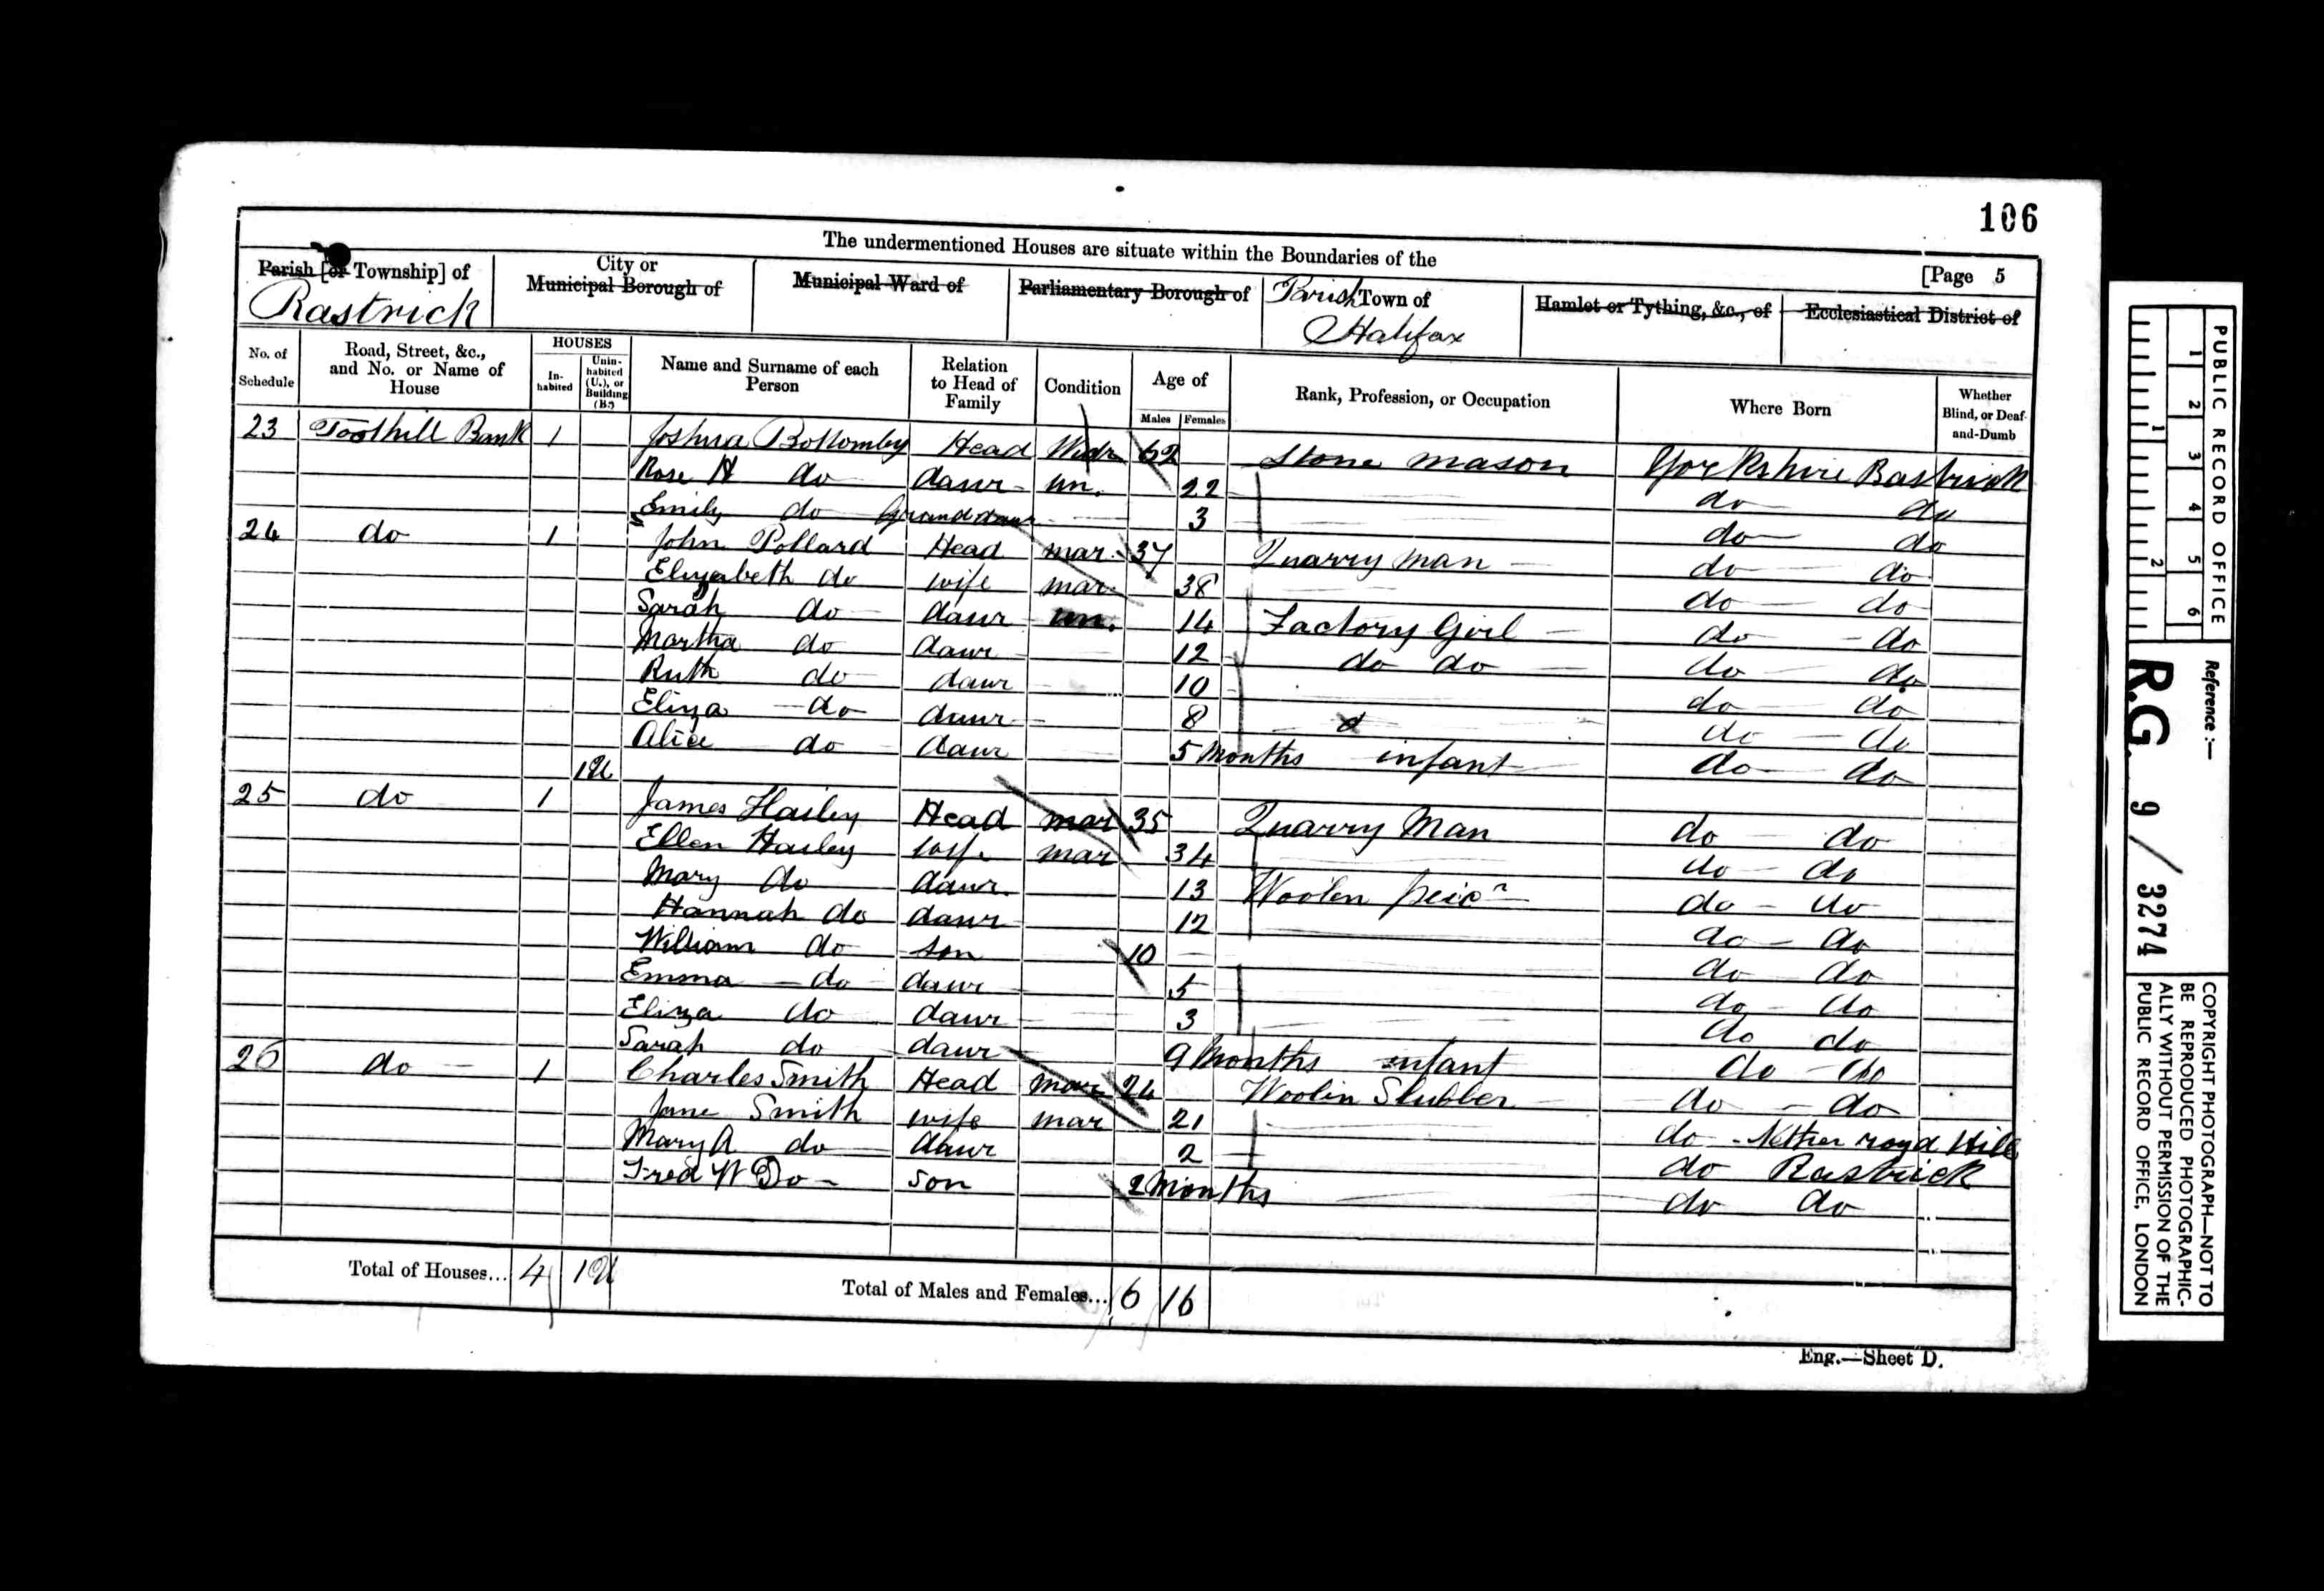 106
The undermentioned Houses are situate within the Boundaries of the
[Page 5
Parish [or Township] of
Rastrick
City or
Municipal Borough of
Municipal Ward of
Parliamentary Borough of
Parish Town of
Halifax
Hamlet or Tything, &c., of
Ecclesiastical District of
No. of Schedule
Road, Street, &c., and No. or Name of House
HOUSES
In-habited
Unin-habited (U.), or Building (B.)
Name and Surname of each Person
Relation to Head of Family
Condition
Age of
Males Females
Rank, Profession, or Occupation
Where Born
Whether Blind, or Deaf-and-Dumb
23 Toothill Bank 1 Joshua Bottomley Head Widr 62 Stone mason Yorkshire Rastrick
Rose H do daur un. 22 do do
Emily do Grand daur 3 do do
24 do 1 John Pollard Head mar. 37 Quarry man do do
Elizabeth do wife mar. 38 do do
Sarah do daur un. 14 Factory Girl do do
Martha do daur 12 do do do do
Ruth do daur 10 do do
Eliza do daur 8 do do
Alice do daur 5 Months infant do do
1U
25 do 1 James Hailey Head mar 35 Quarry Man do do
Ellen Hailey wife mar 34 do do
Mary do daur. 13 Woolen peicr do do
Hannah do daur 12 do do
William do son 10 do do
Emma do daur 5 do do
Eliza do daur 3 do do
Sarah do daur 9 Months infant do do
26 do 1 Charles Smith Head mar 24 Woolin Slubber do do
Jane Smith wife mar 21 do Nether royd Hill
Mary A do daur 2 do Rastrick
Fred W Do son 2 Months do do
Total of Houses... 4 1U
Total of Males and Females... 6 16
Eng.—Sheet D.
PUBLIC RECORD OFFICE
1 2 3 4 5 6
1 2
Reference :—
R.G. 9 / 3274
COPYRIGHT PHOTOGRAPH—NOT TO
BE REPRODUCED PHOTOGRAPHIC-
ALLY WITHOUT PERMISSION OF THE
PUBLIC RECORD OFFICE, LONDON